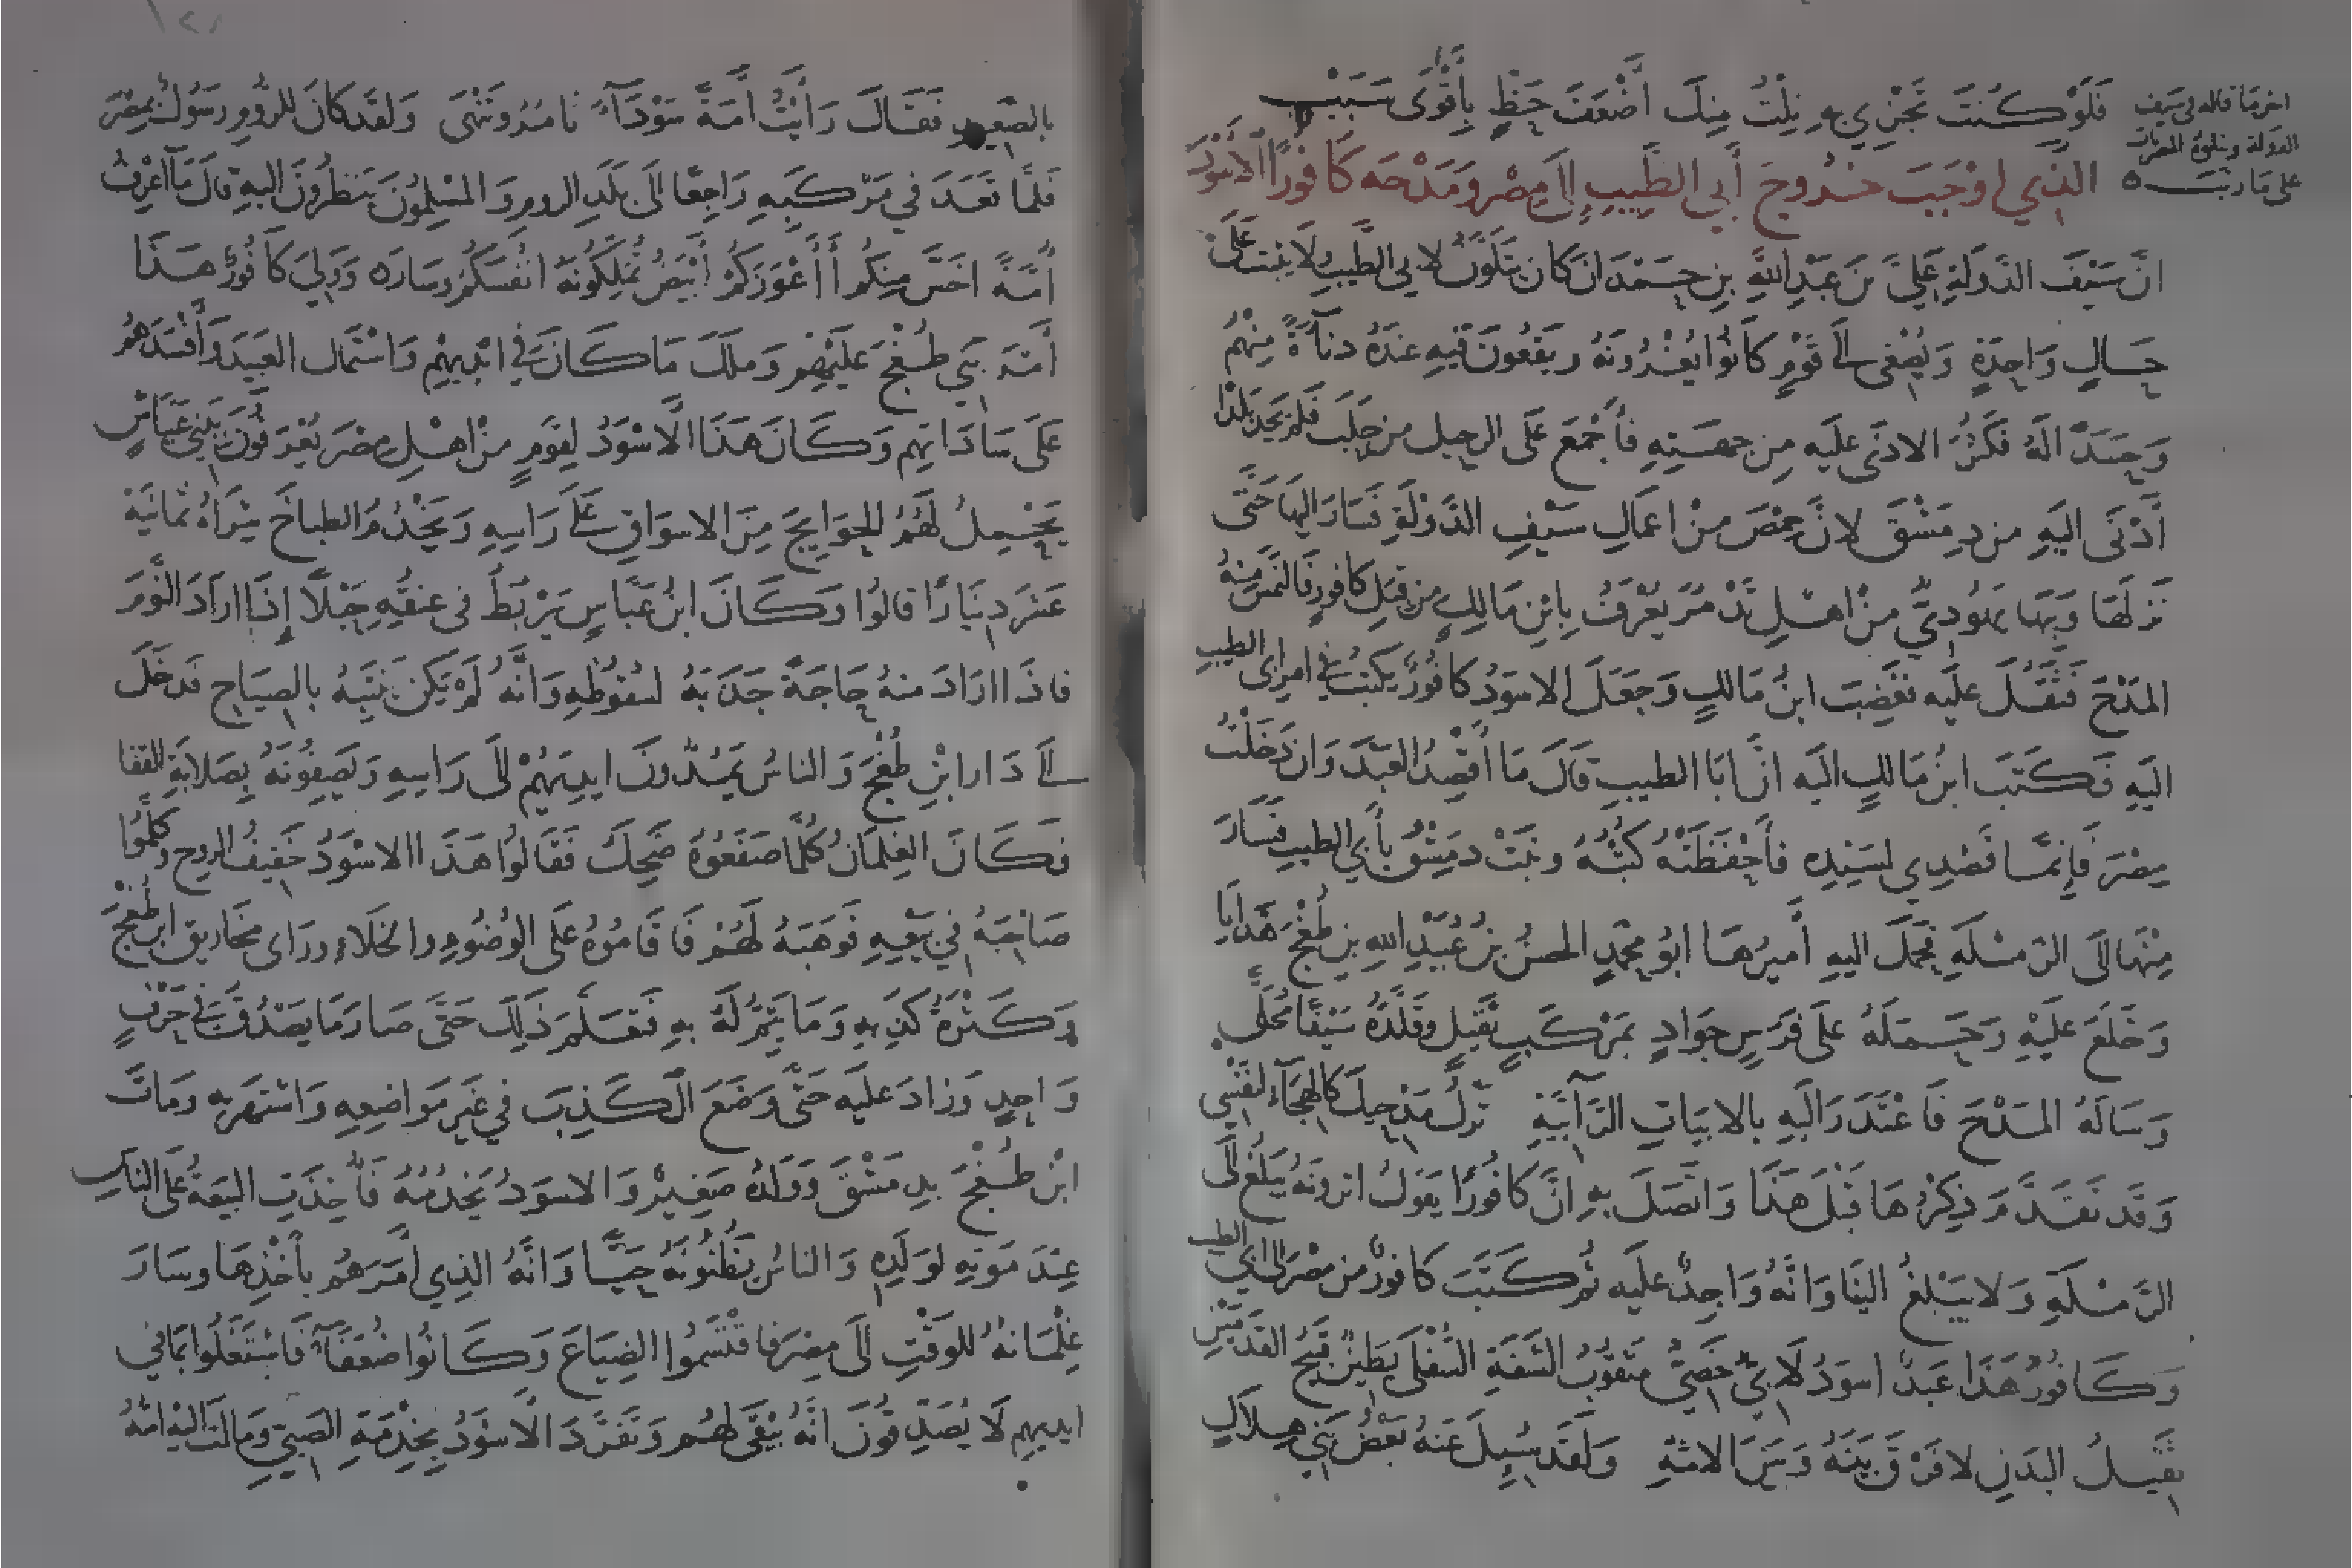 فَلَوْ كُنْتَ تَجْزِي بِهِ نِلْتُ مِنْكَ أَضْعَفَ حَظٍّ بِأَقْوَى سَبَبْ
اخر ما قاله في سيف
الدولة ويتلوه المصريات
على ما رتبت
الذي اوْجَبَ خُرُوجَ أَبي الطَّيِيبِ إلى مِصْرَ ومَدْحَه كَافُورًا الأَسْوَدَ
انَّ سَيْفَ الدَّولَةِ عَلِيَّ بنَ عَبْدِ اللهِ بنِ حَمْدَانَ كان يَتَلَوَّنُ لابي الطَّيِبِ لا يثبت عَلَى
حَالٍ وَاحِدَةٍ وَيُصْغِى إلى قَوْمٍ كَانُوا يُغْرُونَهُ ويَقَعُونَ فيهِ عِندَهُ دنآءَةً مِنْهُمْ
وَحَسَدًا لَهُ فَكَثُرَ الاذَى عَلَيه مِن جهَتِهِ فأَجْمَعَ عَلَى الرحِيلِ من حَلَبَ فَلَم يَجِد بَلَدًا
أَدْنَى اليَهِ من دِمَشْقَ لاِنَّ حِمْصَ مِنْ اعمَالِ سَيْفِ الدَّوْلَةِ فَسَارَ اليهَا حَتَّى
نَزلَهَا وَبِهَا يَهُودِيٌّ مِنْ اهلِ تَدْمُرَ يُعْرَفُ بِابْنِ مَالِكٍ مِن قِبَلِ كافورٍ فالتمسَ مِنهُ
المَدْحَ فَثَقُلَ عَلَيه فغَضِبَ ابنُ مَالكٍ وَجَعَلَ الاسوَدُ كافُورٌ يَكتبُ في امرِ ابى الطيبِ
اليَهِ فَكَتَبَ ابنُ مَالكٍ اليَه انَّ ابَا الطيبِ قالَ مَا أَقْصِدُ العَبْدَ وَان دَخَلْتُ
مِصْرَ فَإِنمَّا قَصْدِي لسَيِّدِه فأَحْفَظَتْهُ كُتُبُهُ ونبَتْ دِمَشْقُ بأَبي الطيبِ فَسَارَ
مِنْهَا إلى الرَّمْلَةِ فحَمَلَ اليهِ أَميرُهَا ابُو مُحَمَّدٍ الحسنُ بنُ عُبَيْدِ اللهِ بنِ طُغْجَ هَدَايَا
وَخَلَعَ عَلَيْهِ وَحَمَلَهُ عَلَى فَرَسٍ جَوَادٍ بمَرْكَبٍ ثَقِيلٍ وقَلَّدَهُ سَيْفًا مُحَلًّى
وَسَالَهُ المَدْحَ فَاعْتَذَرَ الَيهِ بالابيَاتِ الرَّآئِيَّةِ تَرْكُ مَدْحِيكَ كالهِجَآءِ لنَفْسِي
وَقَد تَقَدَّمَ ذِكْرُهَا قَبْلَ هَذَا وَاتَّصَلَ بِهِ انَّ كافُورًا يَقُولُ اترونَهُ يَبْلغُ إلى
الرَّمْلَةِ وَلا يَبْلغُ الينَا وَانَّهُ وَاجِدٌ عَلَيه ثُمَّ كَتَبَ كافورٌ من مصْرَ إلى ابي الطيبِ
وَكَافُورٌ هَذَا عَبْدٌ اسوَدُ لَابيٌّ خَصِيٌّ مثقُوبُ الشَّفَةِ السُّفْلَى بَطِينٌ قَبِيحُ القَدَمَيْنِ
ثَقِيلُ البَدَنِ لا فَرْقَ بَينَهُ وَبَيْنَ الامَةِ وَلَقَد سُيِلَ عَنهُ بَعْضُ بَنِي هِلالٍ
بالصَّعيدِ فَقَالَ رَأَيْتُ أَمَةً سَوْدَآءَ تَامُرُ وتَنْهَى وَلقَد كانَ للرُّومِ رَسُولٌ بمصْرَ
فَلمَّا قَعَدَ في مَرْكَبِهِ رَاجِعًا الَى بَلَدِ الرومِ وَالمسْلِمُونَ يَنظُرُونَ اليهِ قالَ مَا أَعْرِفُ
أُمَّةً اخَسَّ مِنكُم أَأَعْوَزَكُمْ أَبْيَضُ تُمَلِّكُونَهُ انفُسَكُم وسَارَ ه وَوَلِيَ كَافُورٌ هَذَا
أَمْرَ بَنِي طُغْجَ عَلَيْهِم وَمَلَكَ مَا كَانَ في ايْدِيهِم وَاسْتَمَالَ العَبِيدَ وَأَفْسَدَهُمْ
عَلَى سَادَاتِهِم وَكَانَ هَذَا الأَسْوَدُ لِقَومٍ مِنْ اهْلِ مِصْرَ يُعْرَفُونَ ببَنِي عَبَّاسٍ
يَحْمِلُ لَهُمُ الحَوَايِجَ مِنَ الاسوَاقِ عَلَى رَاسِهِ وَيَخْدُمُ الطباخَ شِرَاهُ ثمانيَةَ
عَشَرَ دِينَارًا قالوا وَكَانَ ابنُ عَبَّاسٍ يَرْبِطُ فى عنقِهِ حَبْلاً إذَا ارادَ النَّومَ
فاذَا ارادَ منهُ حَاجَةً جَذَبَهُ لسُقُوطِهِ وَانَّهُ لَمْ يَكن يَنتَبِهُ بالصِيَاحِ فَدَخَلَ
إلى دَارِ ابْنِ طُغْجَ وَالناسُ يَمُدُّونَ ايدِيَهُمْ إلَى رَاسِهِ وَيَصِفُونَهُ بِصَلابَةِ القَفا
فَكَانَ الغِلمَانُ كُلَّمَا صَفَعُوهُ ضَحِكَ فَقَالوُا هَذَا الاسْوَدُ خَفِيفُ الروحِ وكَلَّمُوا
صَاحِبَهُ في بَيْعِهِ فَوَهَبَهُ لَهُمْ فَاقَامُوهُ عَلَى الوُضُوءِ والخَلَاءِ ورَاى مخَاريق ابنِ طُغْجَ
وَكَثْرَةَ كَذِبِهِ وَمَا يَتِمُّ لَهُ بِهِ فَتَعَلَّمَ ذَلِكَ حَتَّى صَارَ مَا يَصْدُقُ في حَرْفٍ
وَاحِدٍ وَزادَ عَلَيه حَتَّى وَضَعَ الْكَذِبَ في غَيرِ مَوَاضِعِهِ وَاشْتَهَرَ بهِ ومَاتَ
ابْنُ طُغْجَ بدِمَشْقَ وَوَلَدُهُ صَغِيرٌ وَالاسوَدُ يَخْدُمُهُ فَأُخِذَتِ البَيْعَةُ عَلَى الناسِ
عِنْدَ مَوتِهِ لوَلَدِهِ وَالناسُ يَظُنُّونَهُ حَيًّا وَانَّهُ الذِي أَمَرَهُم بأَخْذِهَا وسَارَ
غِلْمَانهُ للوَقْتِ الَى مِصْرَ فاقْتَسَمُوا الضِيَاعَ وَكَانُوا ضُعَفَآءَ فَاشْتَغَلُوا بمَا في
ايديهِم لَا يُصَدِّقُونَ انَّهُ يَبْقَى لَهُم وَتَفَرَّدَ الأَسْوَدُ بخِدْمَةِ الصَبيِّ وَمَالَت اليْهِ امُّهُ